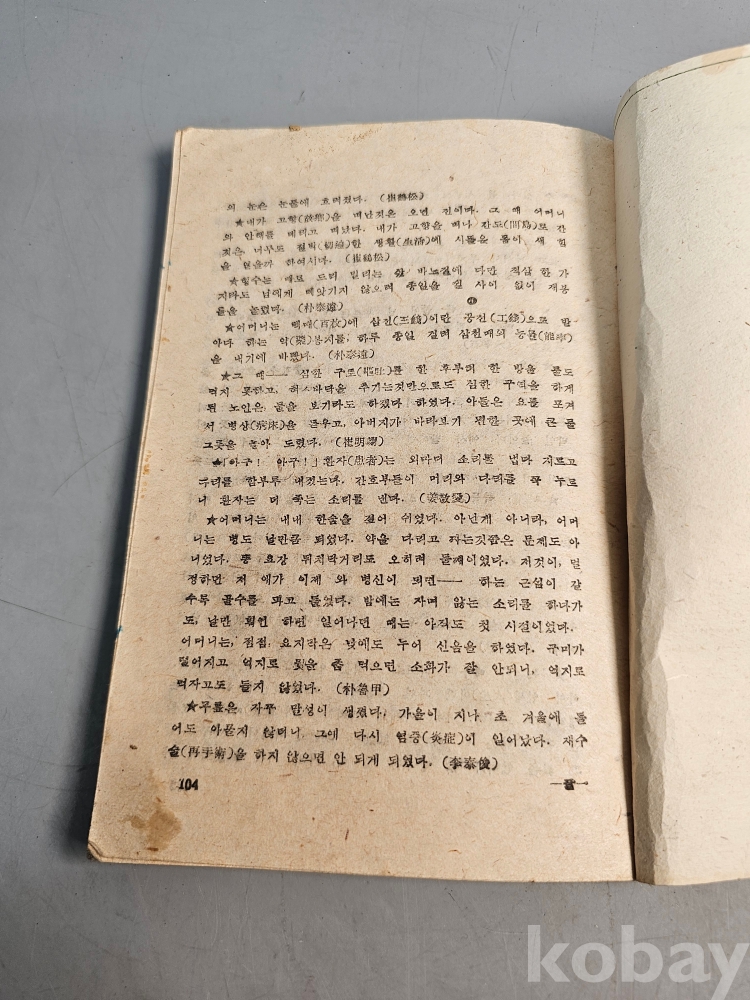 의 눈은 눈물에 흐려졌다. (崔鶴松)
★내가 고향(故鄕)을 떠난것은 오면 전이다. 그 때 어머니
와 안해를 데리고 떠났다. 내가 고향을 떠나 간도(間島)로 간
것은 너무도 절박(切迫)한 생활(生活)에 시들은 몸이 새 힘
을 얻을까 하여서다. (崔鶴松)
때로 드러 밀리는 삯 바느질에 다만 적삼 한 가
지라도 남에게 빼앗기지 않으려 종일을 쉴 사이 없이 재봉
틀을 놀렸다. (朴泰遠)
★어머니는 백매(百枚)에 삼전(三錢)이란 공전(工錢)으로 맡
아다 하는 약(藥)봉지를, 하루 종일 걸려 삼천매의 능률(能率)
을 내기에 바빴다. (朴泰遠)
★그 때—— 심한 구토(嘔吐)를 한 후부터 한 방울 물도
먹지 못하고, 혀스바닥을 추기는것만으로도 심한 구역을 하게
된 노인은 물을 보기라도 하겠다 하였다. 아들은 요를 포겨
서 병상(病床)을 돋우고, 아버지가 바라보기 편한 곳에 큰 물
그릇을 놓아 드렸다. (崔明翊)
★「아구! 아구!」 환자(患者)는 외마디 소리를 냅다 지르고
사지를 함부루 내젓는다. 간호부들이 머리와 다리를 꽉 누르
니 환자는 더 죽는 소리를 낸다. (姜敬愛)
★어머니는 내내 한숨을 걷어 쉬었다. 아닌게 아니라, 어머
니는 병도 날만큼 되었다. 약을 다리고 하는것쯤은 문제도 아
니었다. 똥 요강 뒤치닥거리도 오히려 둘째이었다. 저것이, 멀
정하던 저 애가 이제 와 병신이 되면—— 하는 근심이 갈
수록 골수를 파고 들었다. 밤에는 자며 앓는 소리를 하다가
도, 날만 훤언 하면 일어나던 때는 아직도 첫 시절이었다.
어머니는, 점점, 요지막은 낮에도 누어 신음을 하였다. 구미가
떨어지고 억지로 뭣을 좀 먹으면 소화가 잘 안되니, 억지로
먹자고도 들지 않었다. (朴魯甲)
★무릎은 자꾸 말성이 생겼다. 가을이 지나 초 겨울에 들
어도 아물지 않더니, 그에 다시 염증(炎症)이 일어났다. 재수
술(再手術)을 하지 않으면 안 되게 되었다. (李泰俊)
104
kobay